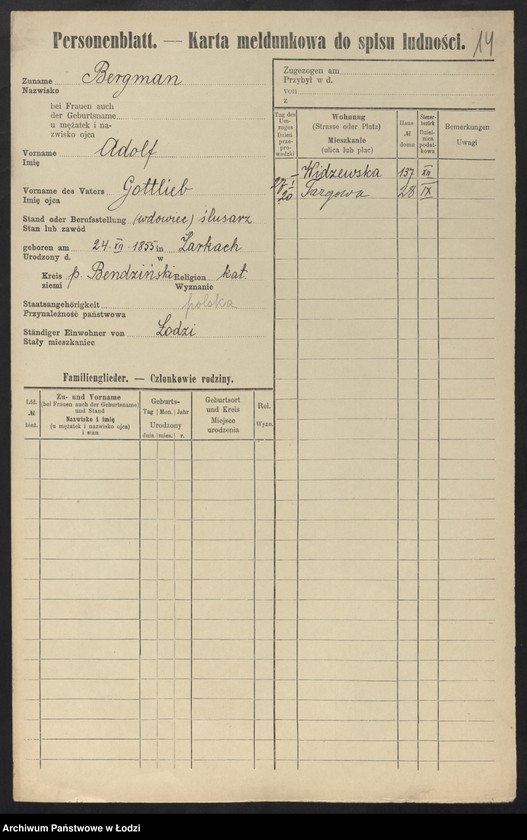 Personenblatt. — Karta meldunkowa do spisu ludności.
14
Zuname Bergman
Nazwisko
bei Frauen auch
der Geburtsname
u mężatek i na-
zwisko ojca
Vorname Adolf
Imię
Vorname des Vaters Gottlieb
Imię ojca
Stand oder Berufsstellung (wdowiec) ślusarz
Stan lub zawód
geboren am 24. XII. 1855 in Żarkach
Urodzony d. w
Kreis p. Bendziński Religion kat.
ziemi Wyznanie
Staatsangehörigkeit polska
Przynależność państwowa
Ständiger Einwohner von Łodzi
Stały mieszkaniec
Familienglieder. — Członkowie rodziny.
Lfd.
№
bież.
Zu- und Vorname
(bei Frauen auch der Geburtsname)
und Stand
Nazwisko i imię
(u mężatek i nazwisko ojca)
i stan
Geburts-
Tag Mon. Jahr
Urodzony
dnia mies. r.
Geburtsort
und Kreis
Miejsce
urodzenia
Rel.
Wyzn.
Zugezogen am
Przybył w d.
von
z
Tag des
Um-
zuges
Dzień
prze-
prowadzki
Wohnung
(Strasse oder Platz)
Mieszkanie
(ulica lub plac)
Haus-
№
domu
Steuer-
bezirk
Dziel-
nica
podat-
kowa
Bemerkungen
Uwagi
— Widzewska 137 XII
27/I 20 Targowa 28 IX
Archiwum Państwowe w Łodzi